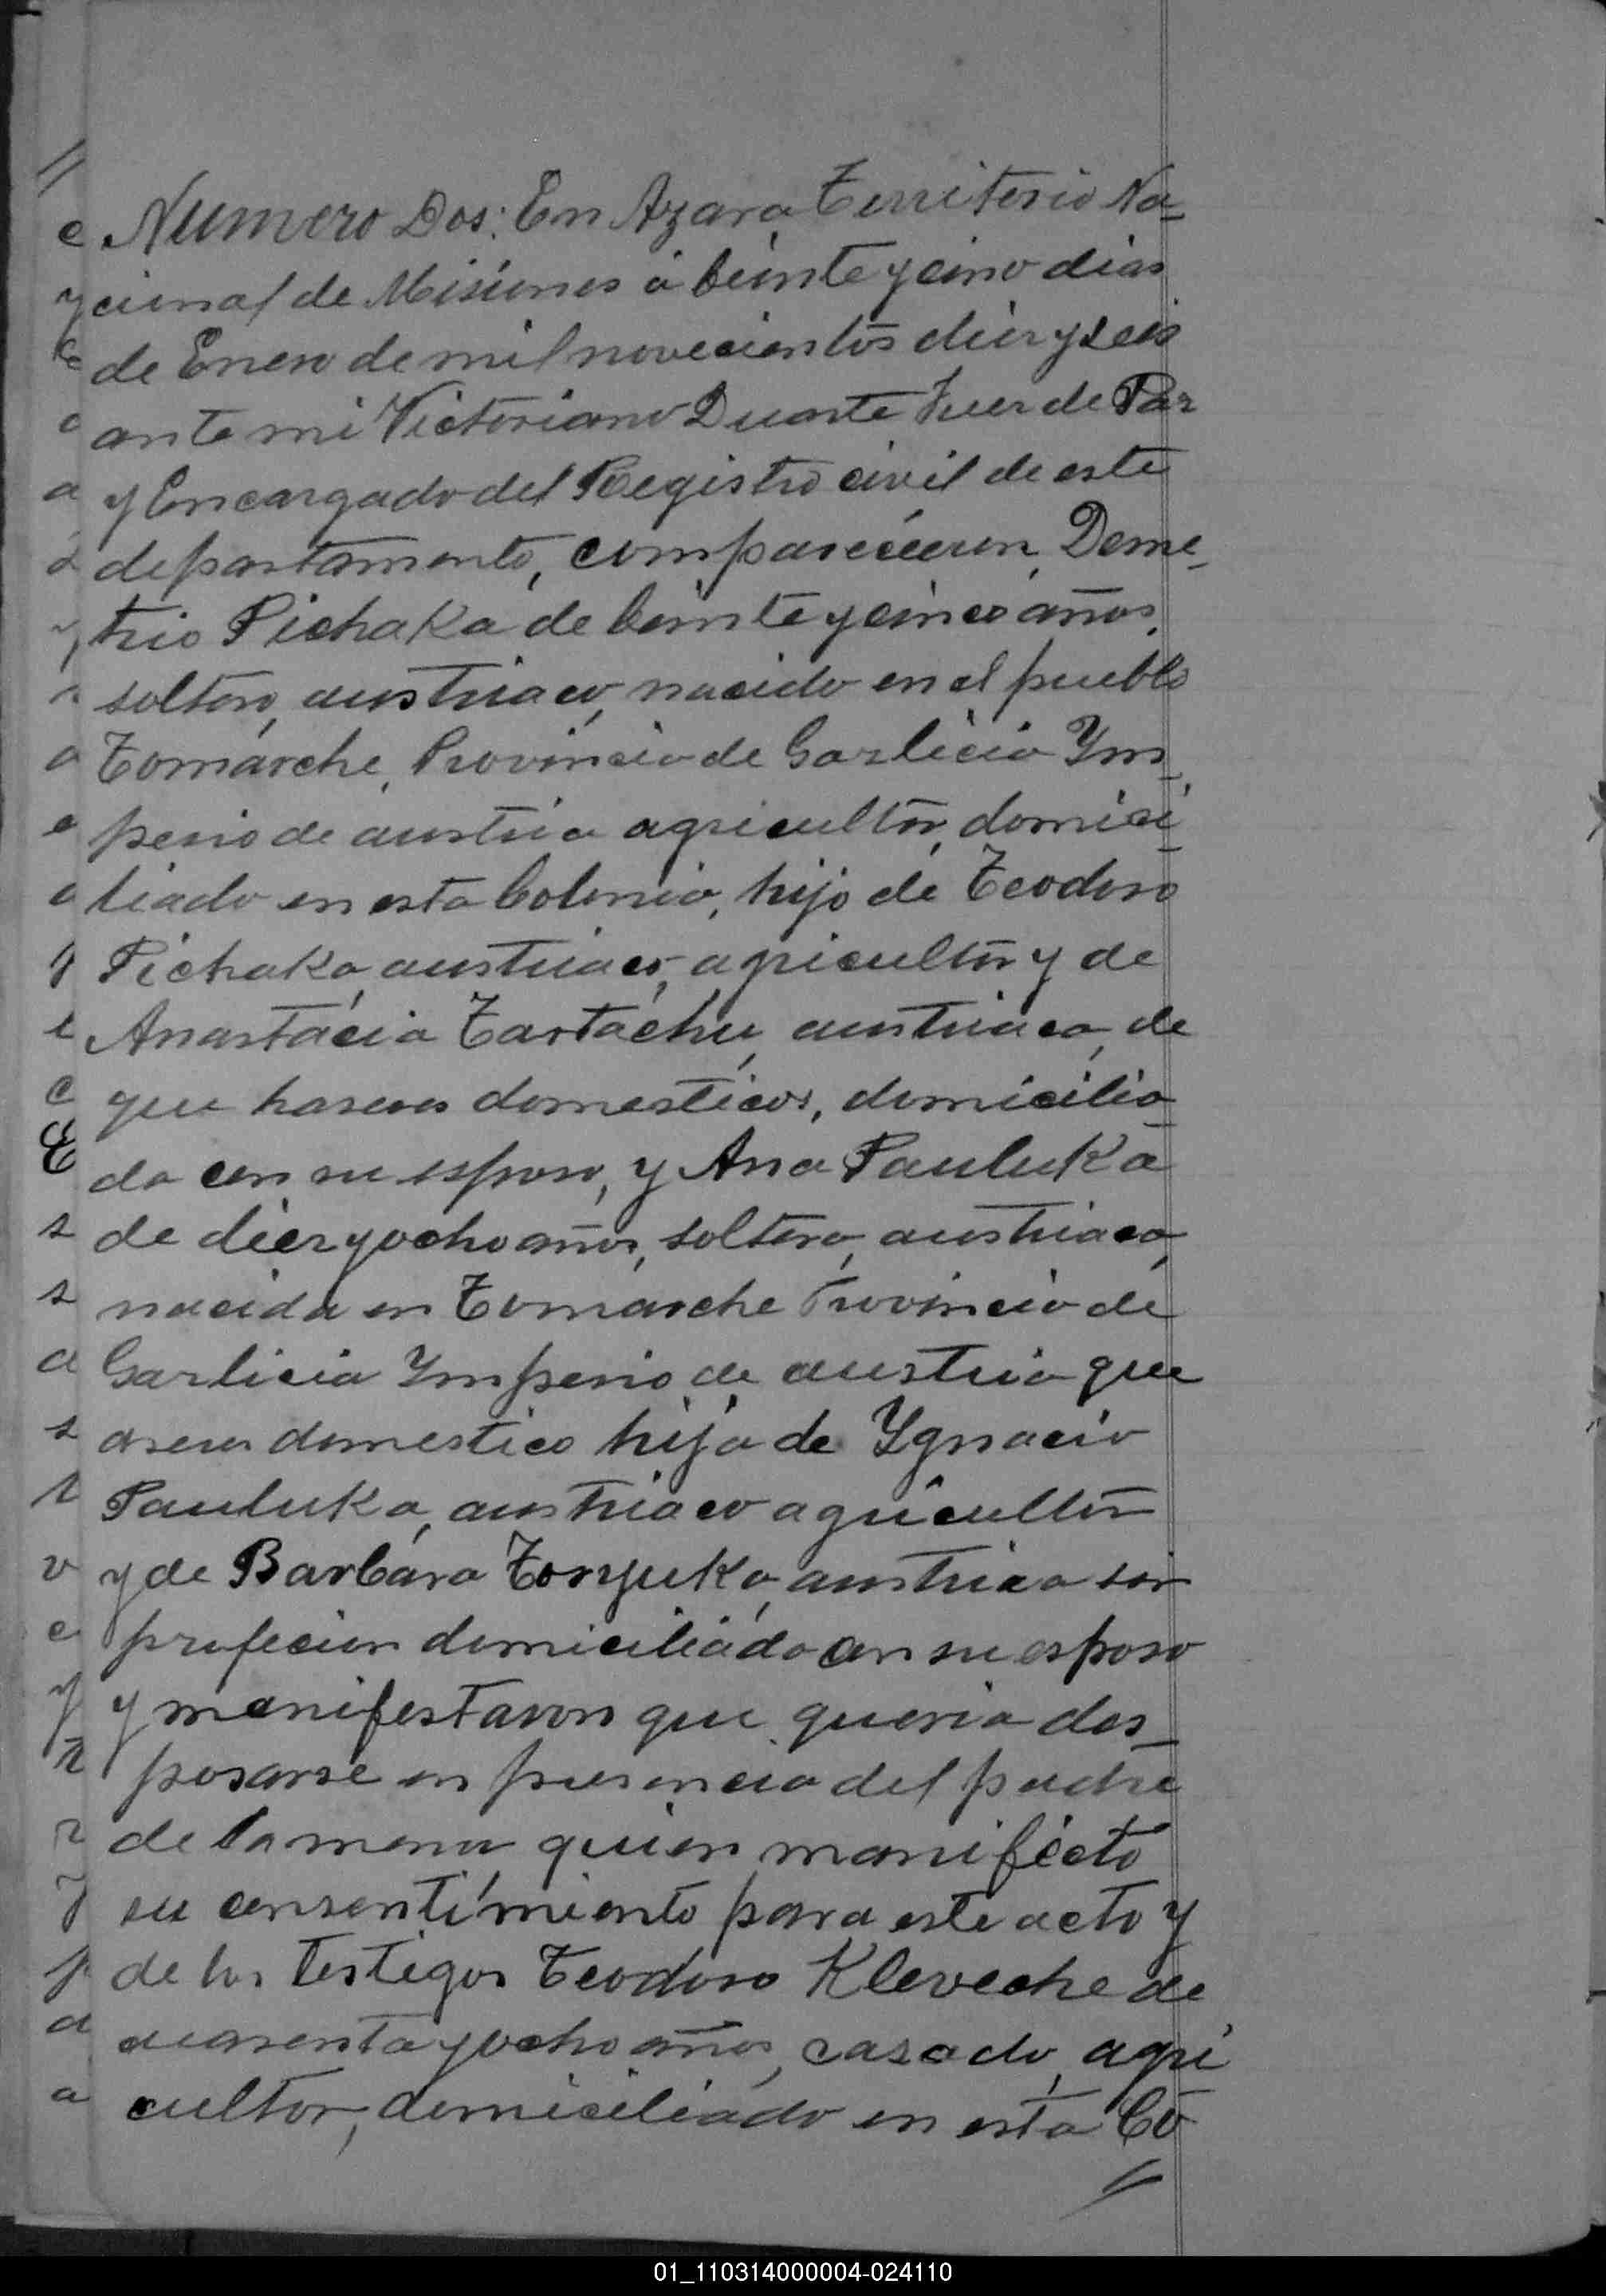 Numero Dos: En Azara Territorio Na-
cional de Misiones á beinte y cinco dias
de Enero de mil novecientos diez y seis
ante mi Victoriano Duarte Juez de Paz
y Encargado del Registro civil de este
departamento, comparecieron, Deme-
trio Pichaka de beinte y cinco años,
soltero, austriaco, nacido en el pueblo
Tomarche, Provincia de Garlicia Ym-
perio de austria agricultor, domici-
liado en esta Colonia, hijo de Teodoro
Pichaka, austriaco, agricultor y de
Anastácia Tartáchu, austriaca, de
que haseres domesticos, domicilia-
da con su esposo, y Ana Pauluka
de diez y ocho años, soltera, austriaca,
nacida en Tomarche Provincia de
Garlicia Ymperio de austria que
aseres domestico hija de Ygnacio
Pauluka, austriaco agricultor
y de Barbara Tonyuka, austriaca sin
profecion domiciliáda con su esposo
y manifestaron que queria des-
posarse en presencia del padre
de la menor quien manifécto
su consentimiento para este acto y
de los testigos Teodoro Kleveche de
cuarenta y ocho años, casado, agri
cultor, domiciliádo en esta Co-
01_110314000004-024110